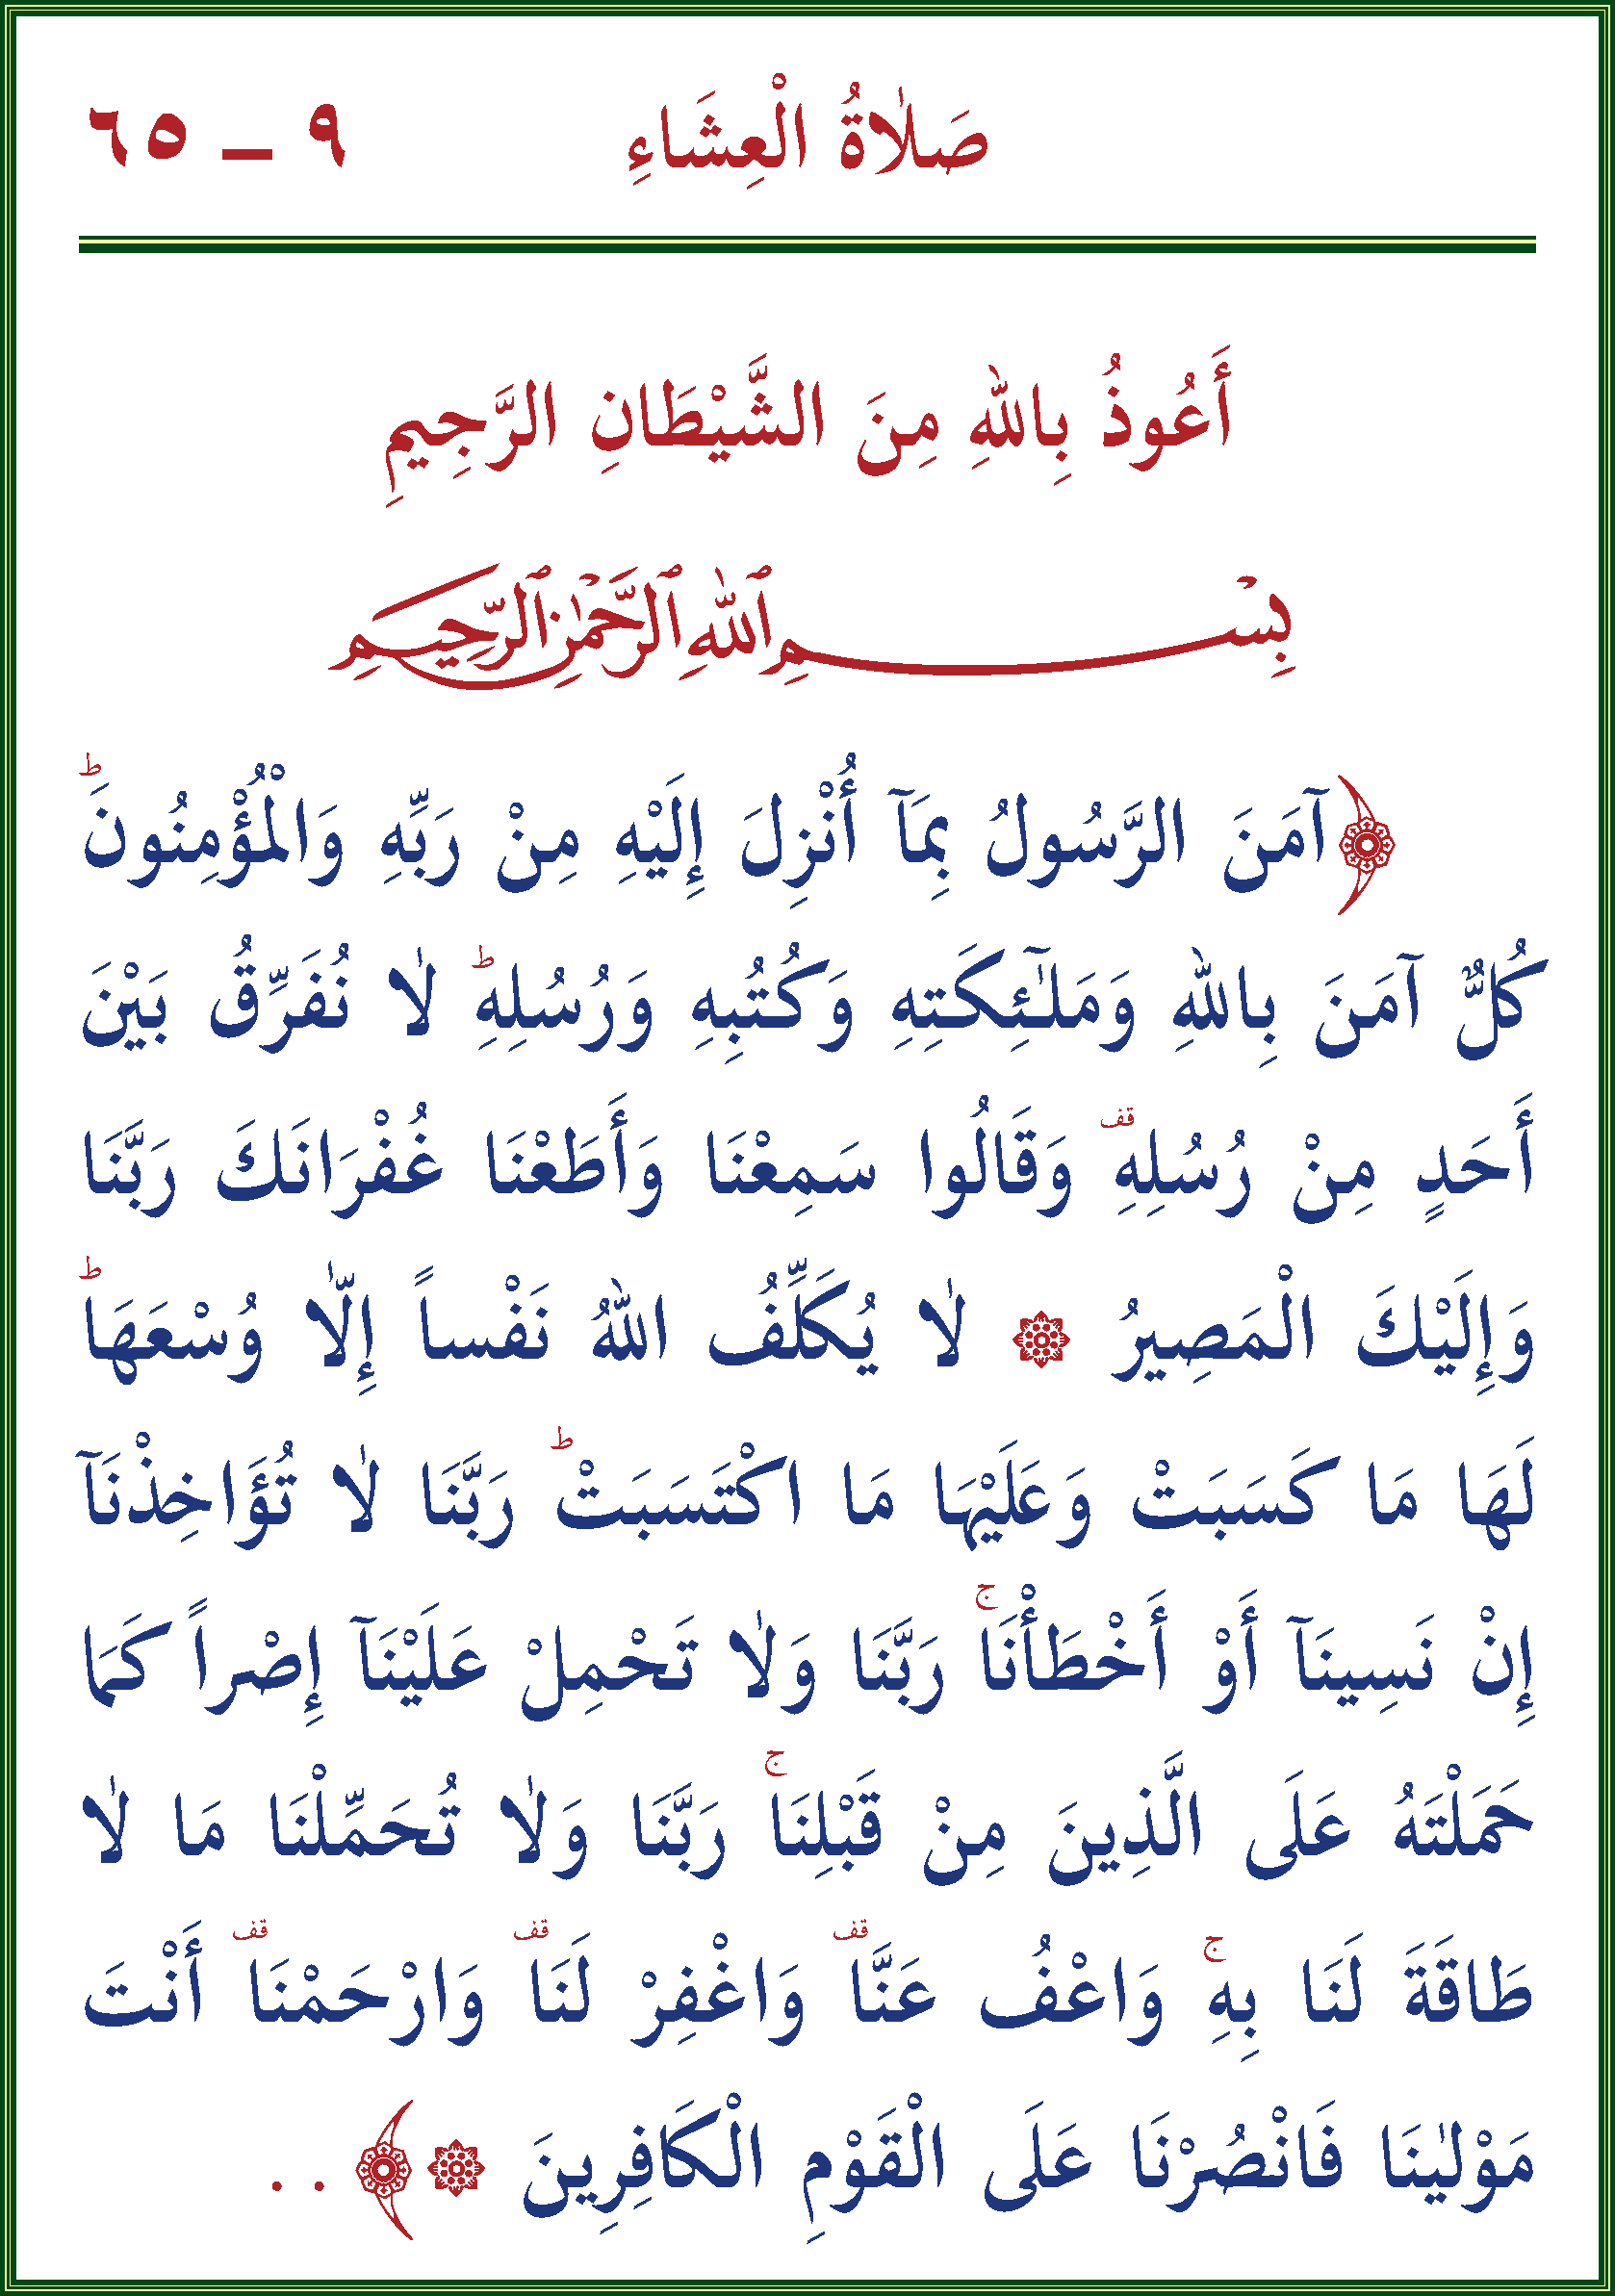 صَلَاةُ الْعِشَاءِ ٩ ــ ٦٥
أَعُوذُ بِاللهِ مِنَ الشَّيْطَانِ الرَّجِيمِ
بِسْمِ ٱللهِ ٱلرَّحْمٰنِ ٱلرَّحِيمِ
﴿آمَنَ الرَّسُولُ بِمَآ أُنْزِلَ إِلَيْهِ مِنْ رَبِّهِ وَالْمُؤْمِنُونَ ؕ
كُلٌّ آمَنَ بِاللهِ وَمَلٰٓئِكَتِهِ وَكُتُبِهِ وَرُسُلِهِ ؕ لٰا نُفَرِّقُ بَيْنَ
أَحَدٍ مِنْ رُسُلِهِ قف وَقَالُوا سَمِعْنَا وَأَطَعْنَا غُفْرَانَكَ رَبَّنَا
وَإِلَيْكَ الْمَصِيرُ ۞ لٰا يُكَلِّفُ اللهُ نَفْساً إِلّٰا وُسْعَهَا ؕ
لَهَا مَا كَسَبَتْ وَعَلَيْهَا مَا اكْتَسَبَتْ ؕ رَبَّنَا لٰا تُؤَاخِذْنَآ
إِنْ نَسِينَآ أَوْ أَخْطَأْنَا ۚ رَبَّنَا وَلٰا تَحْمِلْ عَلَيْنَآ إِصْراً كَمَا
حَمَلْتَهُ عَلَى الَّذِينَ مِنْ قَبْلِنَا ۚ رَبَّنَا وَلٰا تُحَمِّلْنَا مَا لٰا
طَاقَةَ لَنَا بِهِ ۚ وَاعْفُ عَنَّا قف وَاغْفِرْ لَنَا قف وَارْحَمْنَا قف أَنْتَ
مَوْلٰينَا فَانْصُرْنَا عَلَى الْقَوْمِ الْكَافِرِينَ ۞﴾ . .